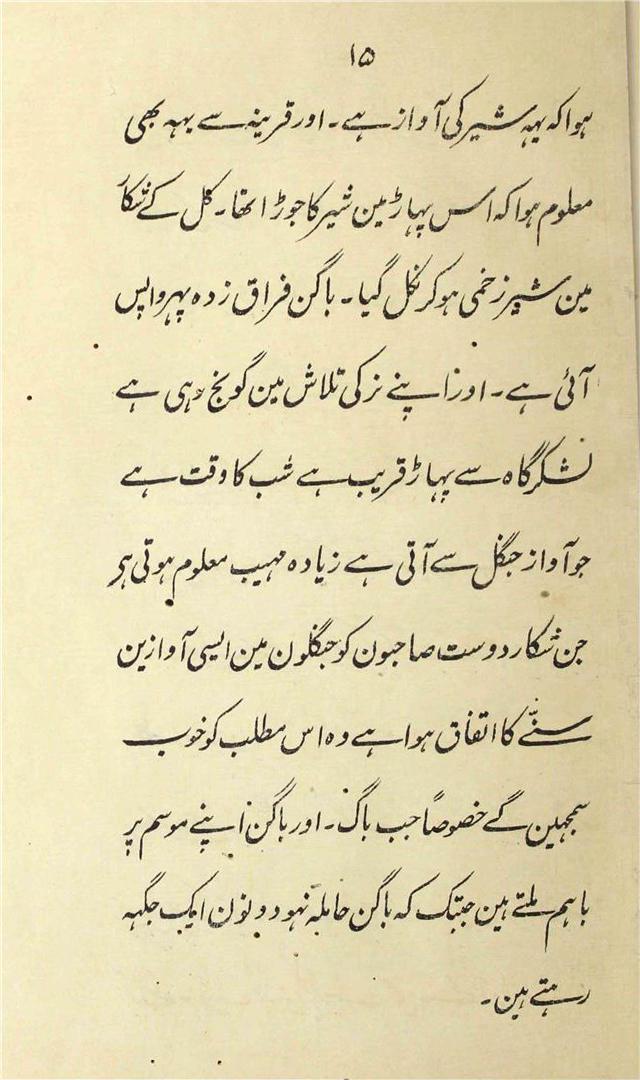 ۱۵
ہوا کہ یہہ شیر کی آواز ہے۔ اور قرینہ سے یہہ بھی
معلوم ہوا کہ اس پہاڑ مین شیر کا جوڑا تھا۔ کل کے شکار
مین شیر زخمی ہو کر نکل گیا۔ باگن فراق زدہ پہر واپس
آئی ہے۔ اور اپنے نر کی تلاش مین گونج رہی ہے
لشکر گاہ سے پہاڑ قریب ہے شب کا وقت ہے
جو آواز جنگل سے آتی ہے زیادہ مہیب معلوم ہوتی ہے
جن شکار دوست صاحبون کو جنگلون مین ایسی آوازین
سننے کا اتفاق ہوا ہے وہ اس مطلب کو خوب
سمجہین گے خصوصاً جب باگ۔ اور باگن اپنے موسم پر
باہم ملتے ہین جبتک کہ باگن حاملہ نہو دونون ایک جگہہ
رہتے ہین۔